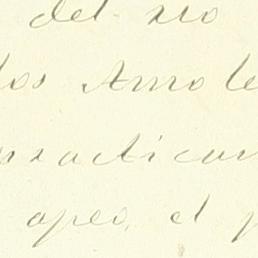 del rio
los Amole
practican
apeo, el p